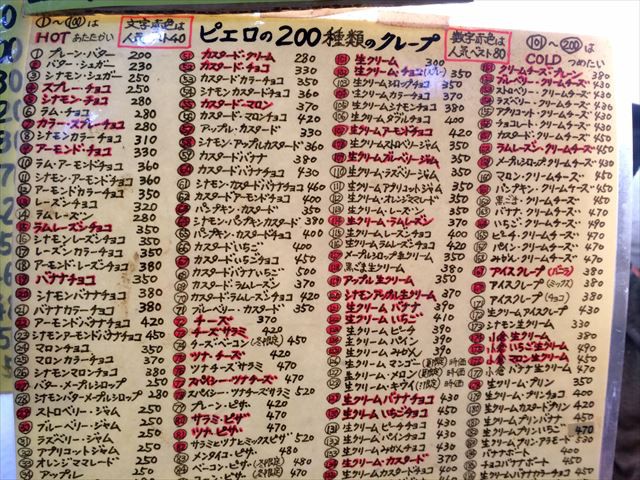 ①〜⑩⓪は
HOT あたたかい
文字赤色は
人気ベスト40
ピエロの200種類のクレープ
数字赤色は
人気ベスト80
(101)〜(200)は
COLD つめたい
① プレーン・バター 200
② バター・シュガー 230
③ シナモン・シュガー 250
④ スプレー・チョコ 250
⑤ シナモン・チョコ 280
⑥ ラム・チョコ 280
⑦ カラー・スプレーチョコ 280
⑧ シナモンカラーチョコ 310
⑨ アーモンド・チョコ 330
⑩ ラム・アーモンドチョコ 360
⑪ シナモン・アーモンドチョコ 360
⑫ アーモンドカラーチョコ 350
⑬ レーズンチョコ 320
⑭ ラムレーズン 280
⑮ ラムレーズンチョコ 350
⑯ シナモンレーズンチョコ 350
⑰ レーズンカラーチョコ 350
⑱ アーモンド・レーズンチョコ 380
⑲ バナナチョコ 350
⑳ シナモンバナナチョコ 380
㉑ バナナカラーチョコ 380
㉒ アーモンドバナナチョコ 420
㉓ シナモンアーモンドバナナチョコ 450
㉔ マロンチョコ 350
㉕ マロンカラーチョコ 370
㉖ シナモンマロンチョコ 380
㉗ バター・メープルシロップ 250
㉘ シナモンバターメープルシロップ 280
㉙ ストロベリー・ジャム 250
㉚ ブルーベリー・ジャム 250
㉛ ラズベリー・ジャム 250
㉜ アプリコットジャム 250
㉝ オレンジママレード 250
㉞ アップル 250
51 カスタード・クリーム 280
52 カスタード・チョコ 330
53 カスタードカラーチョコ 350
54 カスタードシナモンチョコ 360
55 カスタード・マロン 370
56 カスタードマロンチョコ 420
57 アップル・カスタード 330
58 シナモン・アップルカスタード 360
59 カスタードバナナ 380
60 カスタードバナナチョコ 430
61 シナモンカスタードバナナチョコ 460
62 カスタードアーモンドチョコ 400
63 パンプキン・カスタード 350
64 シナモンパンプキンカスタード 380
65 パンプキン・カスタードチョコ 400
66 カスタードいちご 400
67 カスタードいちごチョコ 450
68 カスタードバナナいちご 500
69 カスタードラムレーズン 370
70 カスタードラムレーズンチョコ 420
71 ブルーベリー・カスタード 350
72 チーズ 370
73 チーズサラミ 420
74 チーズ・ベーコン (冬限定) 450
75 ツナ・チーズ 420
76 ツナチーズサラミ 470
77 スパイシーツナチーズ 470
78 スパイシー・ツナチーズサラミ 520
79 プレーン・ピザ 420
80 サラミ・ピザ 470
81 ツナ・ピザ 470
82 サラミとツナミックスピザ 520
83 メンタイコ・ピザ 480
84 ベーコン・ピザ (冬限定) 480
101 生クリーム 300
102 生クリーム・チョコ(スプレー) 350
103 生クリームシロップチョコ 350
104 生クリームカラーチョコ 370
105 生クリームシナモンチョコ 380
106 生クリームダブルチョコ 400
107 生クリームアーモンドチョコ 420
108 生クリームストロベリージャム 350
109 生クリームブルーベリージャム 350
110 生クリームラズベリージャム 350
111 生クリームアプリコットジャム 350
112 生クリームオレンジママレード 350
114 生クリーム・ラムレーズン 370
116 生クリームラムレーズンチョコ 420
117 メープルシロップ生クリーム 350
118 黒ごま生クリーム 380
119 アップル生クリーム 350
120 シナモンアップル生クリーム 380
121 生クリームバナナ 390
122 生クリームいちご 410
生クリームピーチ 390
生クリームパイン 390
生クリームみかん 390
生クリームマンゴー (夏限定) 時価
生クリーム・メロン (夏限定) 時価
生クリーム・キウイ 時価
生クリームバナナチョコ 430
生クリームいちごチョコ 450
生クリームピーチチョコ 430
生クリームパインチョコ 430
生クリームみかんチョコ 430
生クリームカスタード 370
生クリームカスタードチョコ 420
クリームチーズ・プレーン 380
ブルーベリー・クリームチーズ 430
ストロベリー・クリームチーズ 430
ラズベリー・クリームチーズ 430
アプリコット・クリームチーズ 430
チョコレート・クリームチーズ 430
カスタード・クリームチーズ 430
ラムレーズン・クリームチーズ 450
メープルシロップクリームチーズ 430
マロン・クリームチーズ 450
パンプキン・クリームチーズ 450
黒ごま・クリームチーズ 450
バナナ・クリームチーズ 470
いちご・クリームチーズ 490
ピーチ・クリームチーズ 470
パイン・クリームチーズ 470
みかん・クリームチーズ 470
アイスクレープ(バニラ) 380
アイスクレープ(ミックス) 380
アイスクレープ(チョコ) 380
生クリームアイス 430
シナモン生クリーム 330
小倉生クリーム 380
小倉いちご生クリーム 490
小倉マロン生クリーム 450
小倉バナナ生クリーム 470
生クリーム・プリン 350
生クリームプリンチョコ 400
生クリームカスタードプリン 420
生クリームプリンバナナ 450
生クリームプリンいちご 470
生クリームプリンアラモード 530
バナナボート 400
チョコバナナボート 450